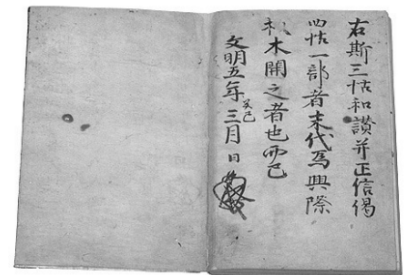 右斯三帖和讃并正信偈
四帖一部者末代為興際
板木開之者也而已
文明五年癸巳三月 日